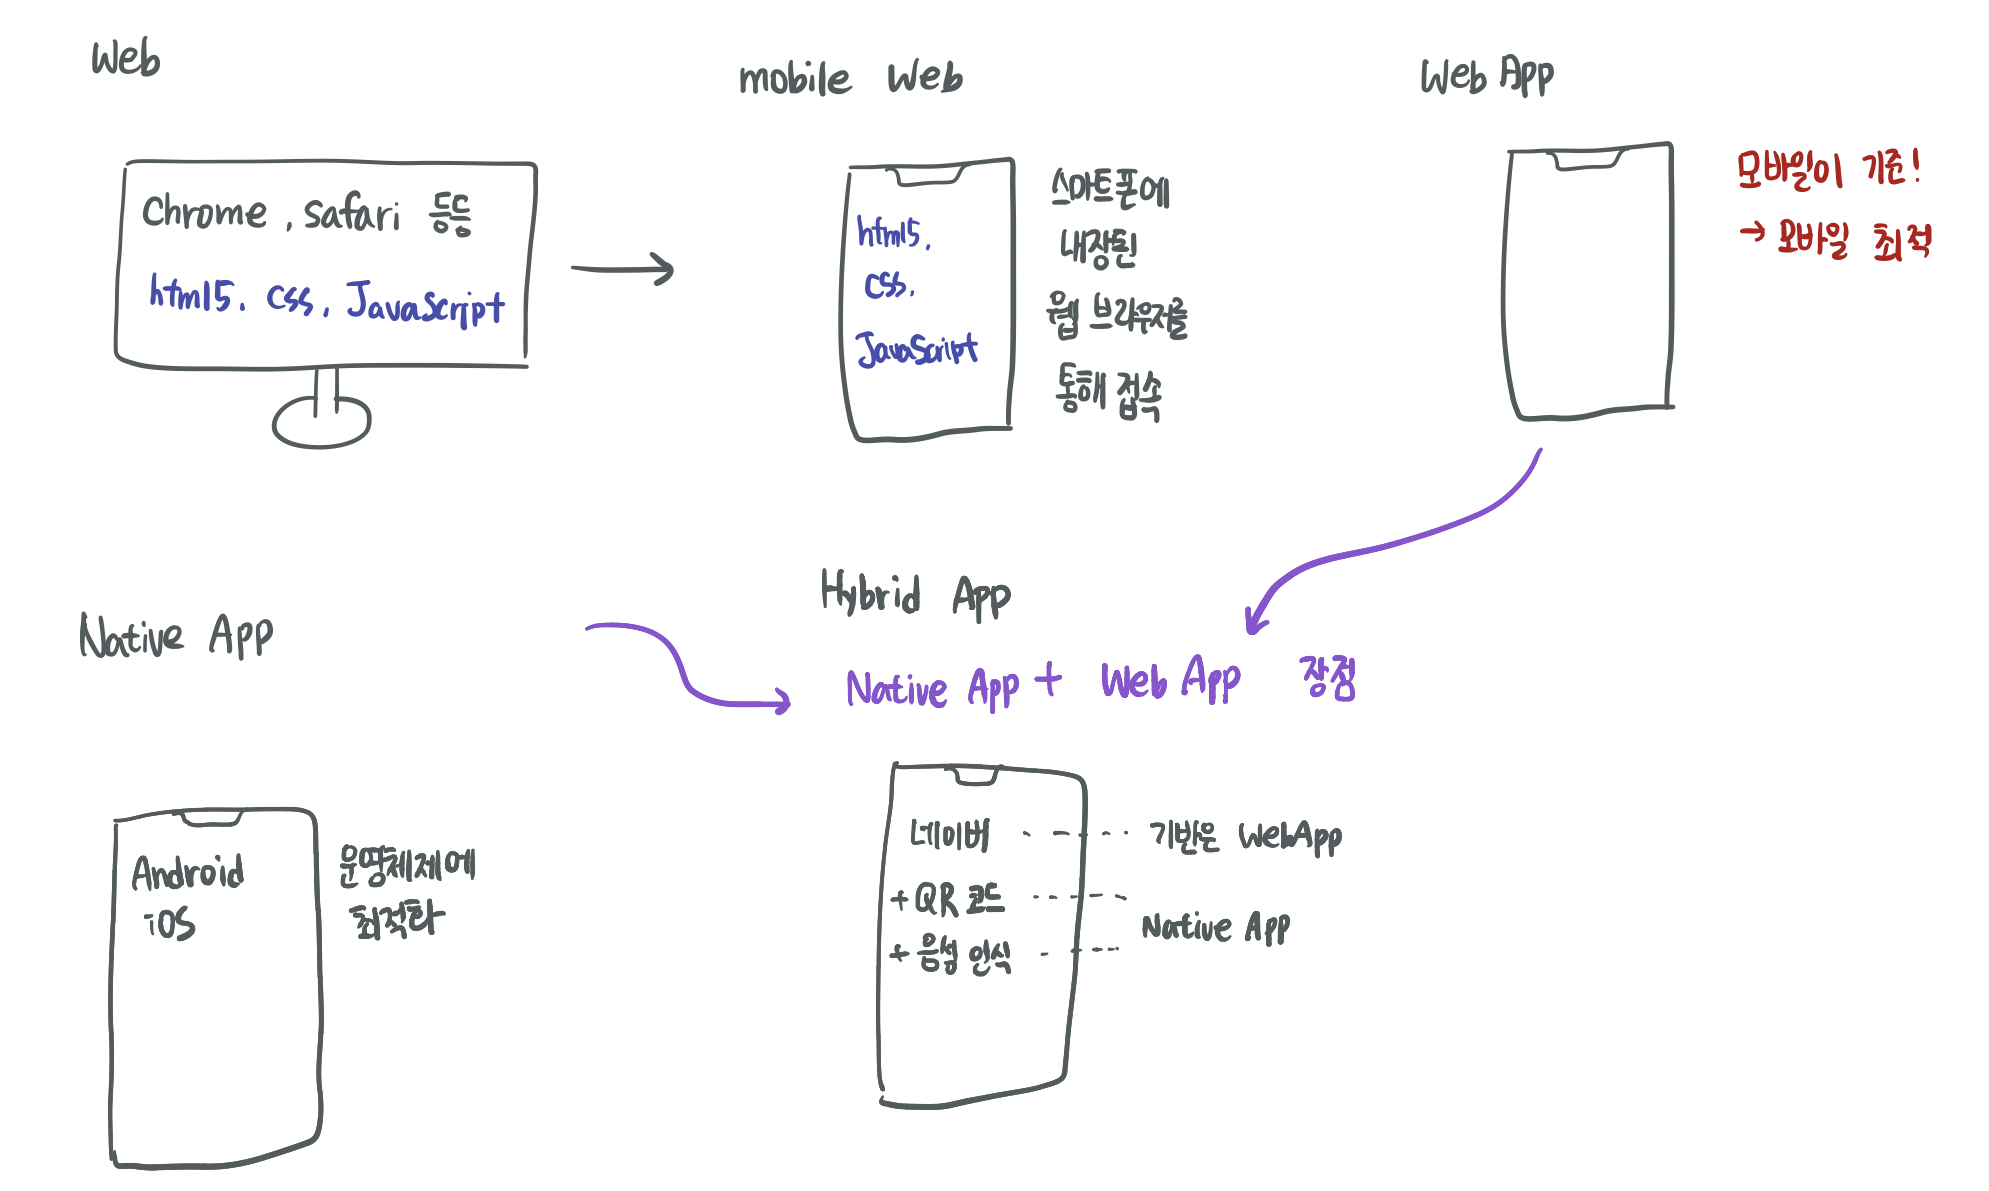 Web
Chrome, safari 등등
html5. css, JavaScript
mobile Web
html5.
css.
JavaScript
스마트폰에
내장된
웹 브라우저를
통해 접속
Web App
모바일이 기준!
→ 모바일 최적
Native App
Android
iOS
운영체제에
최적화
Hybrid App
Native App + Web App 장점
네이버 기반은 WebApp
+ QR 코드
+ 음성 인식
Native App